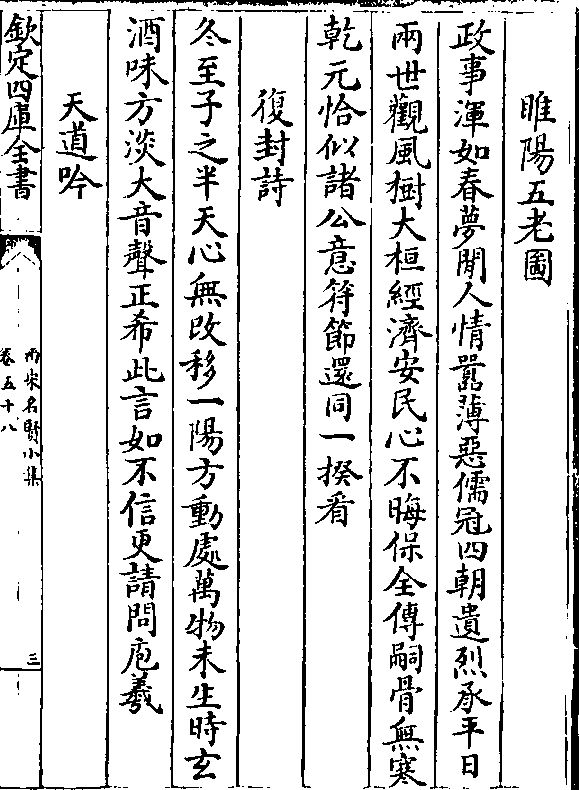 睢陽五老圖
政事渾如春夢閒人情囂薄惡儒冠四朝遺烈承平日
兩世觀風樹大桓經濟安民心不晦保全傳嗣骨無寒
乾元恰似諸公意符節還同一揆看
復卦詩
冬至子之半天心無改移一陽方動處萬物未生時玄
酒味方淡大音聲正希此言如不信更請問庖羲
天道吟
欽定四庫全書
兩宋名賢小集
卷五十八
三